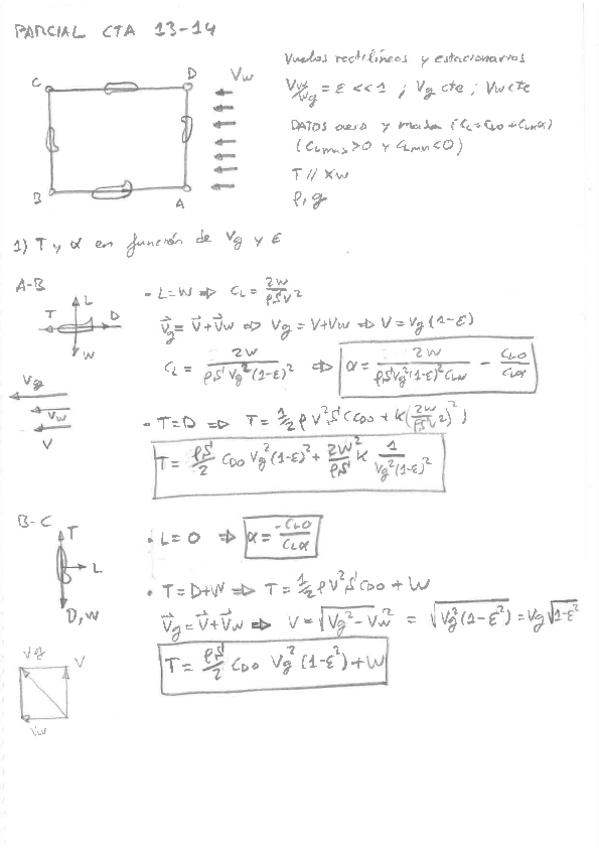 PARCIAL CTA 13-14
Vuelos rectilíneos y estacionarios
Vw/Vg = ε << 1 ; Vg cte ; Vw cte
DATOS aero y masa (CL = CL0 + CLαα)
(CLmax > 0 y CLmin < 0)
T // Xw
ρ, g
C D Vw
B A
1) T y α en función de Vg y ε
A-B
L
T D
W
Vg
Vw
V
- L=W ⇒ CL = 2W/ρSV²
V⃗g = V⃗ + V⃗w ⇒ Vg = V+Vw ⇒ V = Vg (1-ε)
CL = 2W/ρSVg²(1-ε)² ⇒ α = 2W/ρSVg²(1-ε)²CLα - CL0/CLα
- T=D ⇒ T = 1/2 ρV²S(CD0 + K(2W/ρSV²)²)
T = ρS/2 CD0 Vg²(1-ε)² + 2W²/ρS K 1/Vg²(1-ε)²
B-C
T
L
D, W
Vg V
Vw
• L=0 ⇒ α = -CL0/CLα
• T=D+W ⇒ T = 1/2 ρV²S CD0 + W
V⃗g = V⃗ + V⃗w ⇒ V = √(Vg² - Vw²) = √(Vg²(1-ε²)) = Vg√(1-ε²)
T = ρS/2 CD0 Vg² (1-ε²) + W